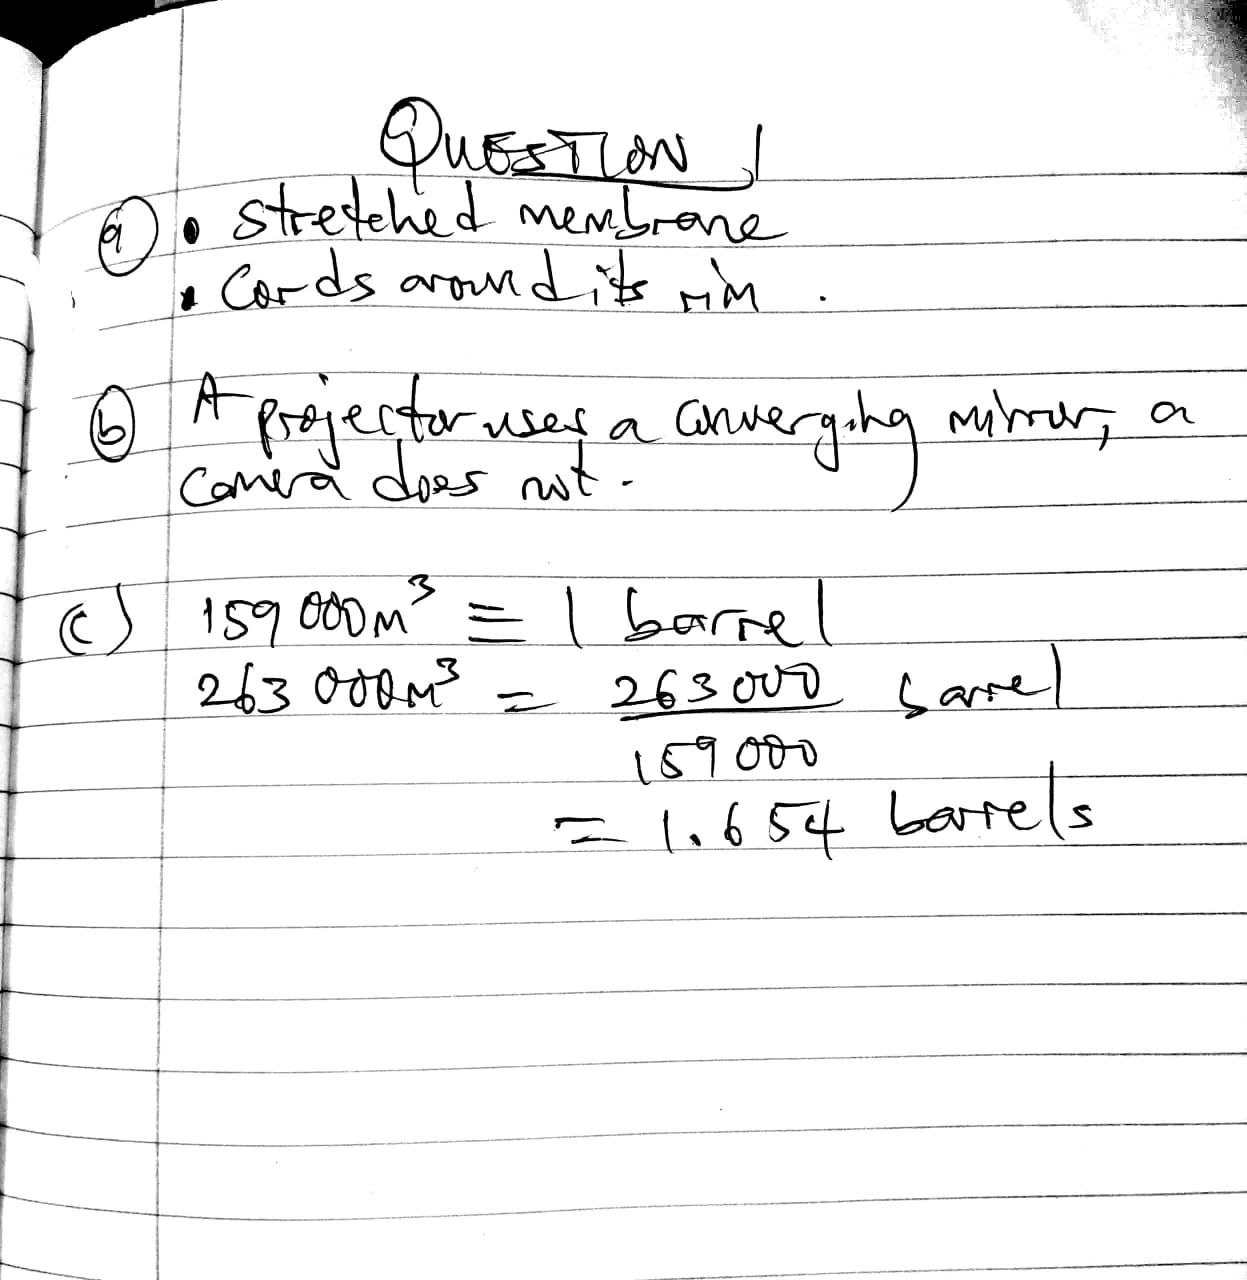 QUESTION 1
(a) • stretched membrane
• Cords around its rim.
(b) A projector uses a converging mirror, a
camera does not.
(c) 159 000m³ ≡ 1 barrel
263 000m³ = 263 000 barrel
159 000
= 1.654 barrels